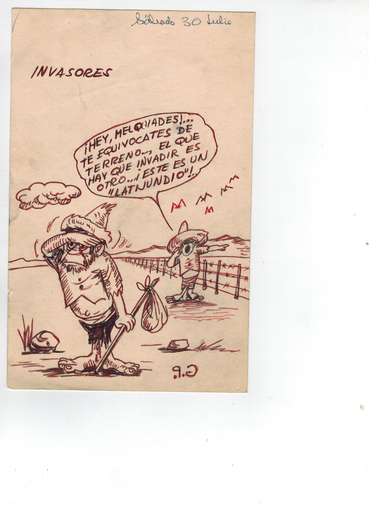 Sábado 30 Julio
INVASORES
¡HEY, MELQUIADES!...
TE EQUIVOCATES DE
TERRENO..., EL QUE
HAY QUE INVADIR ES
OTRO...¡ESTE ES UN
"LATIJUNDIO"!.
G.P.